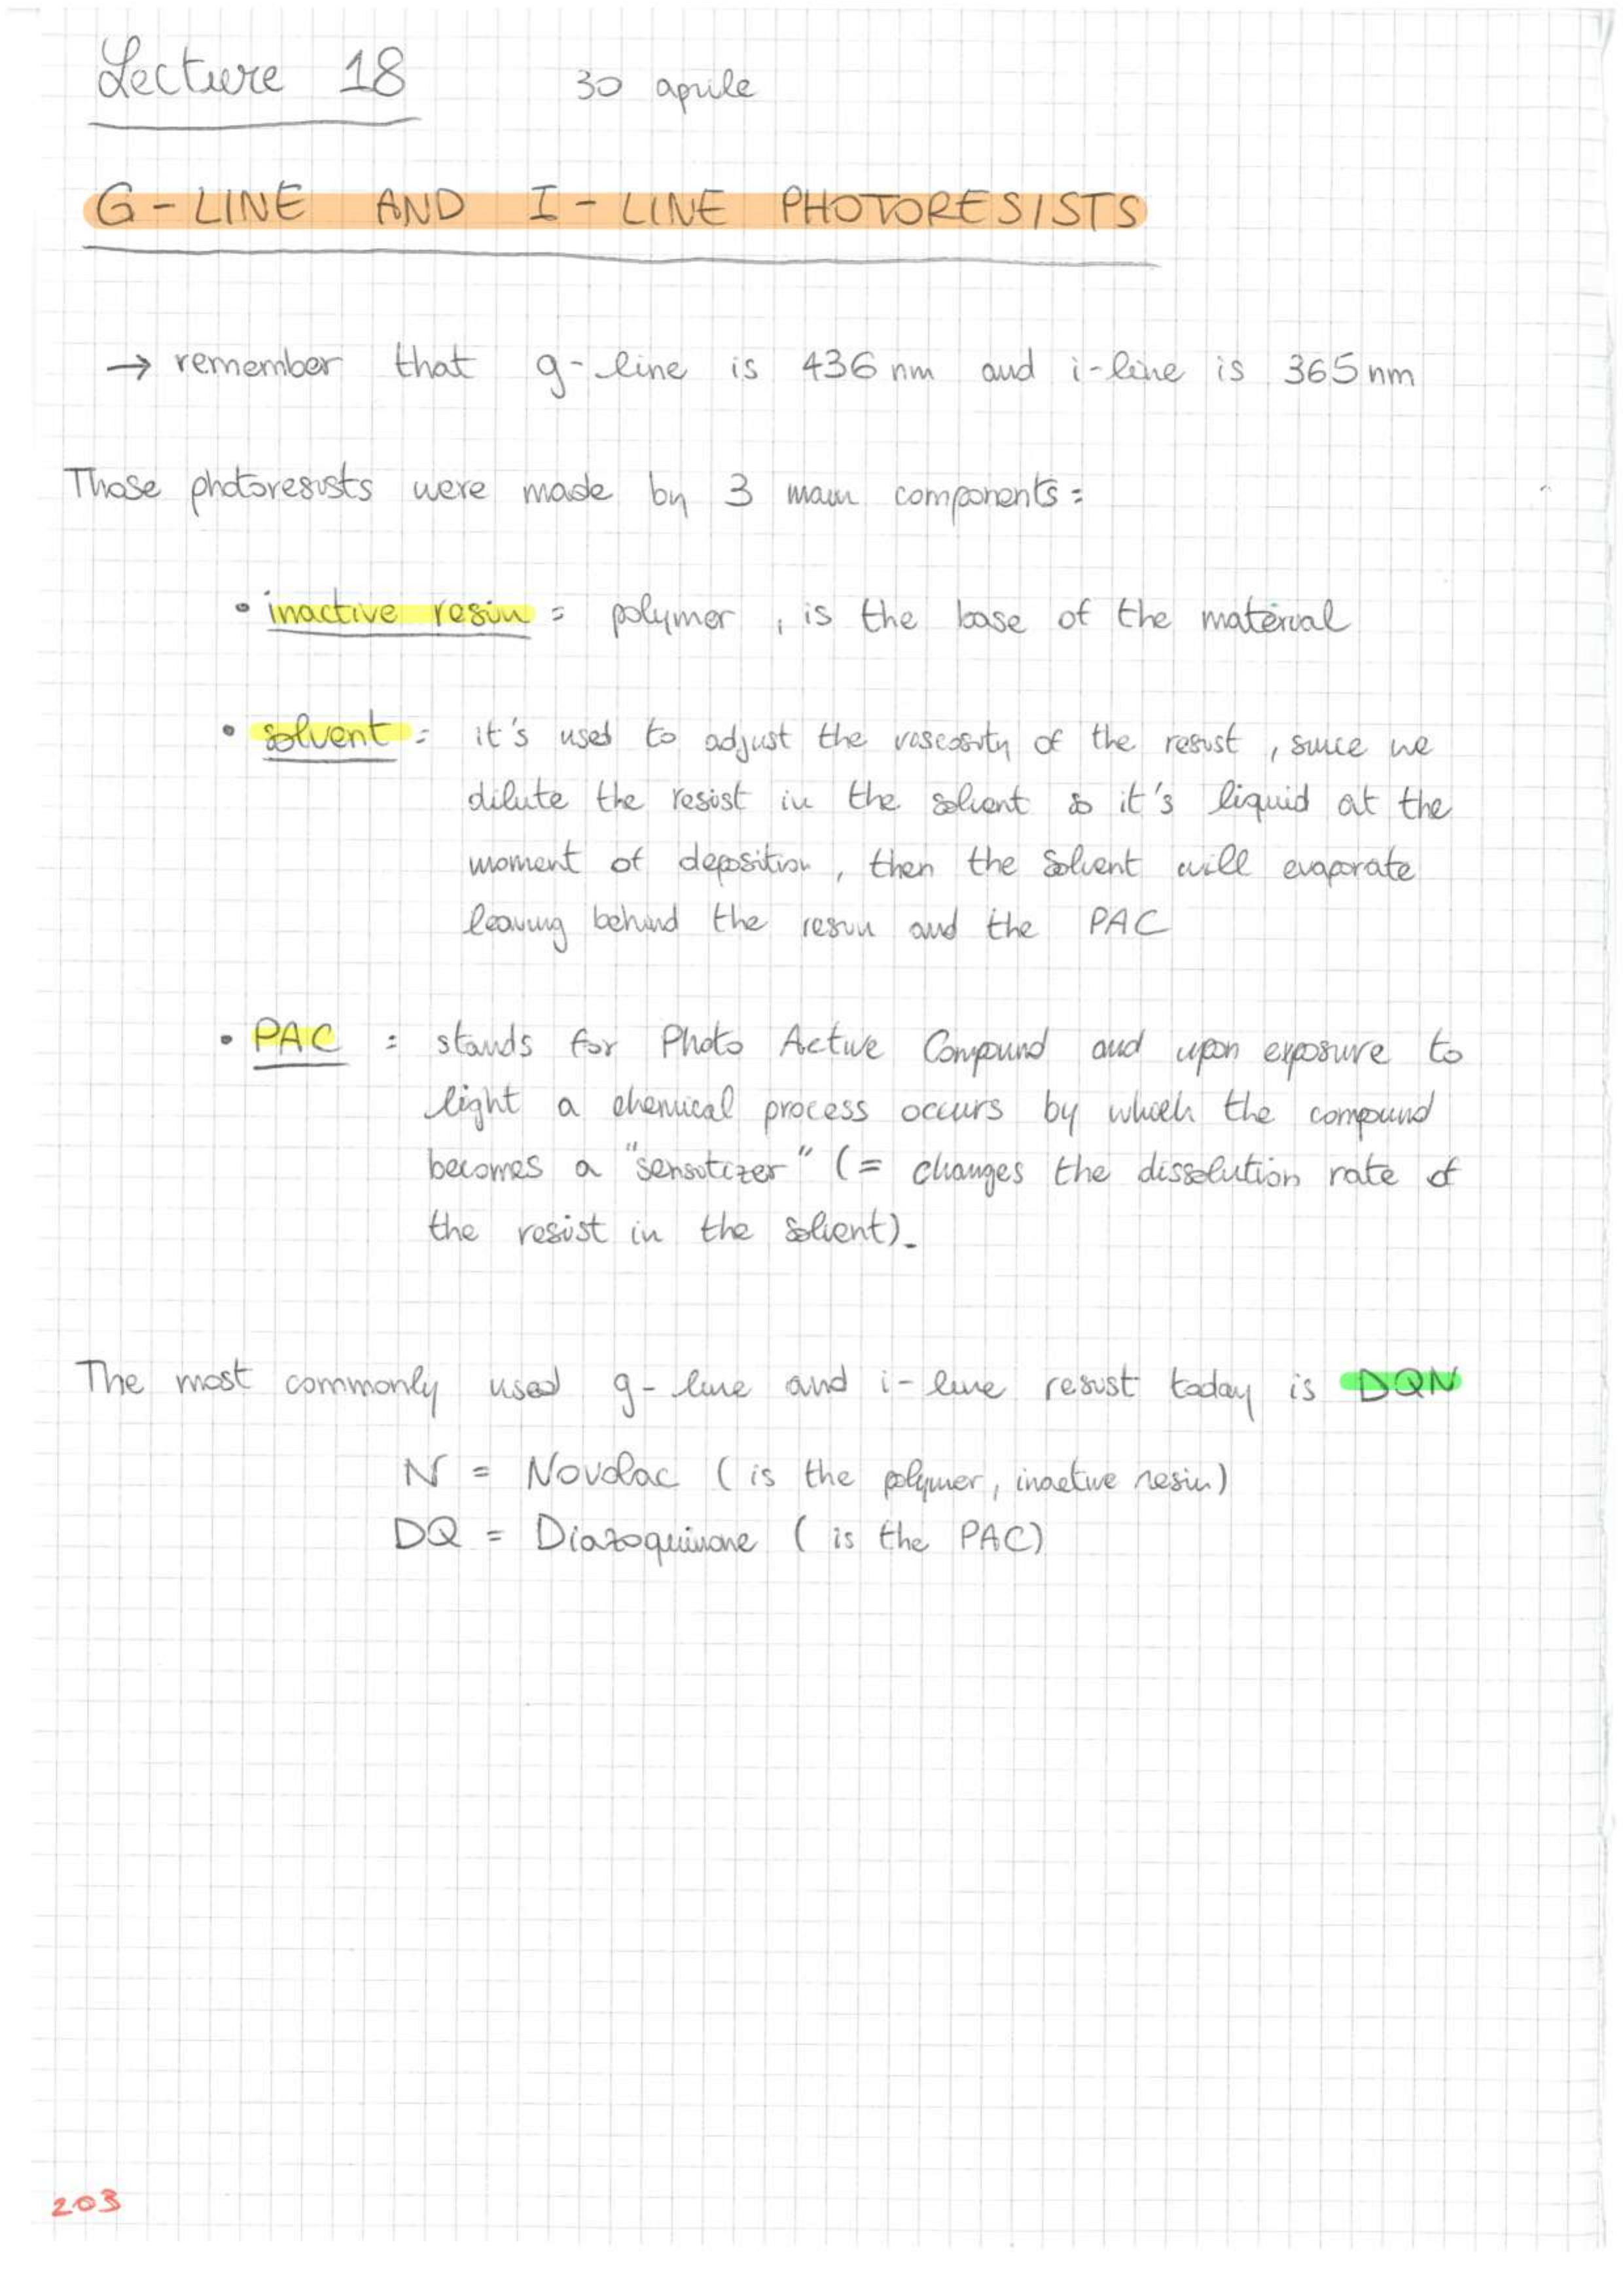 Lecture 18 30 aprile
G-LINE AND I-LINE PHOTORESISTS
→ remember that g-line is 436 nm and i-line is 365 nm
Those photoresists were made by 3 main components:
• inactive resin = polymer, is the base of the material
• solvent = it's used to adjust the viscosity of the resist, since we
dilute the resist in the solvent so it's liquid at the
moment of deposition, then the solvent will evaporate
leaving behind the resin and the PAC
• PAC = stands for Photo Active Compound and upon exposure to
light a chemical process occurs by which the compound
becomes a "sensitizer" (= changes the dissolution rate of
the resist in the solvent).
The most commonly used g-line and i-line resist today is DQN
N = Novolac (is the polymer, inactive resin)
DQ = Diazoquinone (is the PAC)
203